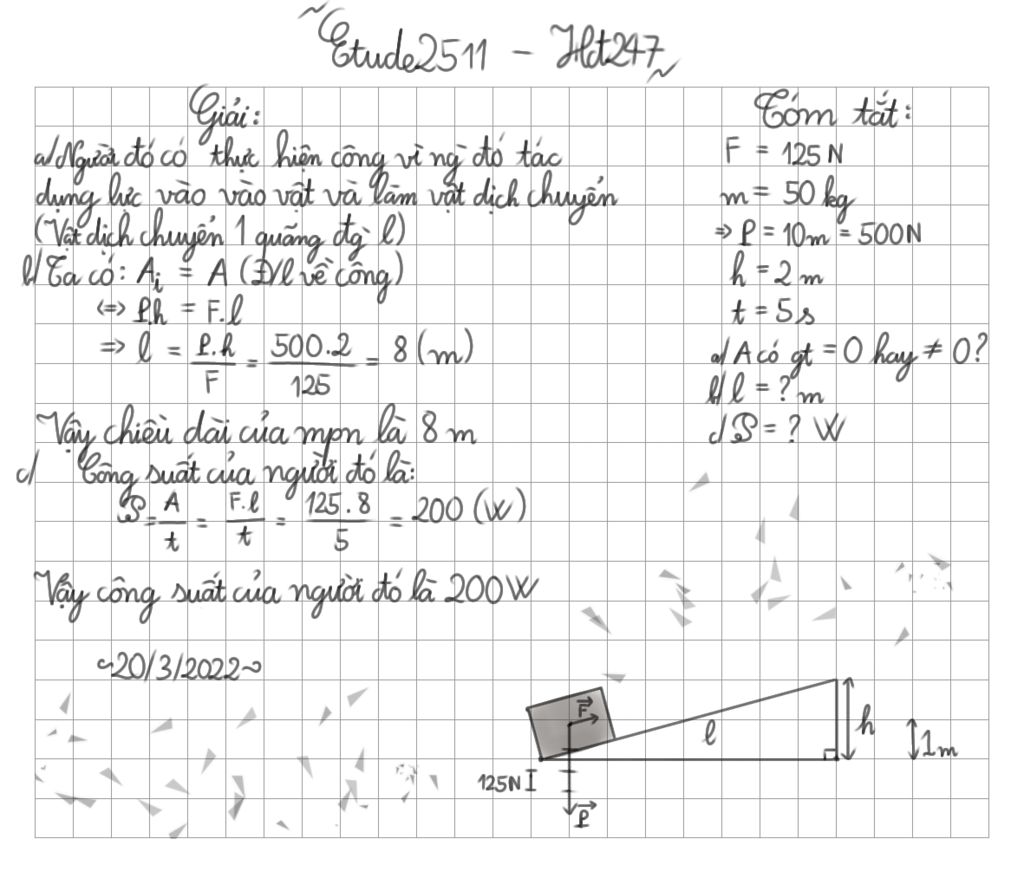 ~ Etude2511 - Hd247 ~
Giải:
a/ Người đó có thực hiện công vì ng` đó tác
dụng lực vào vào vật và làm vật dịch chuyển
(Vật dịch chuyển 1 quãng đg` l)
b/ Ta có: Aᵢ = A (Đ/l về công)
<=> P.h = F.l
=> l = P.h/F = 500.2/125 = 8 (m)
Vậy chiều dài của mpn là 8 m
c/ Công suất của người đó là:
𝒫 = A/t = F.l/t = 125.8/5 = 200 (W)
Vậy công suất của người đó là 200W
~20/3/2022~
Tóm tắt:
F = 125 N
m = 50 kg
=> P = 10m = 500N
h = 2 m
t = 5 s
a/ A có gt = 0 hay ≠ 0?
b/ l = ? m
c/ 𝒫 = ? W
F
l
h
1m
125N
P